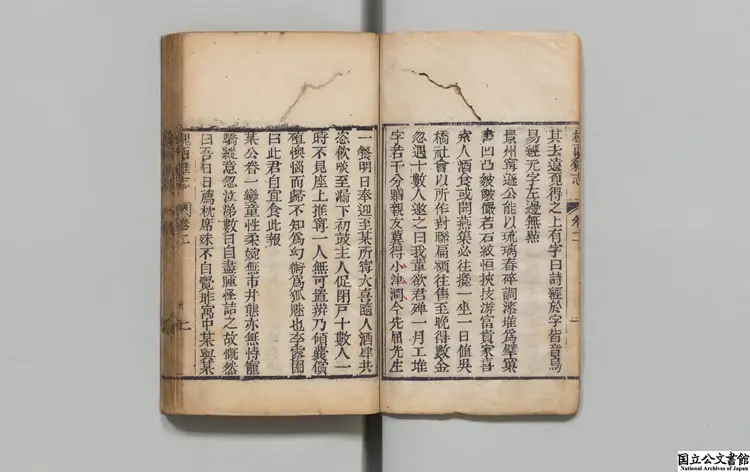 槐西雜志 卷二
其去遠覓得之上有字曰詩經於字皆音烏
易經无字左邊無點
景州甯遜公能以琉璃舂碎調漆堆爲擘窠
書凹凸皴皺儼若石紋恒挾技游富貴家喜
索人酒食或聞燕集必往攙一坐一日值吳
橋社會以所作對聯匾額往售至晚得數金
忽遇十數人邀之曰我輩欲君殫一月工堆
字若干分贈親友冀得小津潤今先屈先生
一餐明日奉迎至某所甯大喜隨入酒肆共
恣飲啖至漏下初鼓主人促閉戶十數人一
時不見座上惟甯一人無可置辨乃傾囊償
値懊惱而歸不知爲幻術爲狐魅也李露園
曰此君自宜食此報
某公眷一孌童性柔婉無市井態亦無恃寵
驕縱意忽泣涕數日目盡腫怪詰之故慨然
曰吾日日薦枕席殊不自覺昨寓中某與某
槐西雜志 卷二
国立公文書館
National Archives of Japan